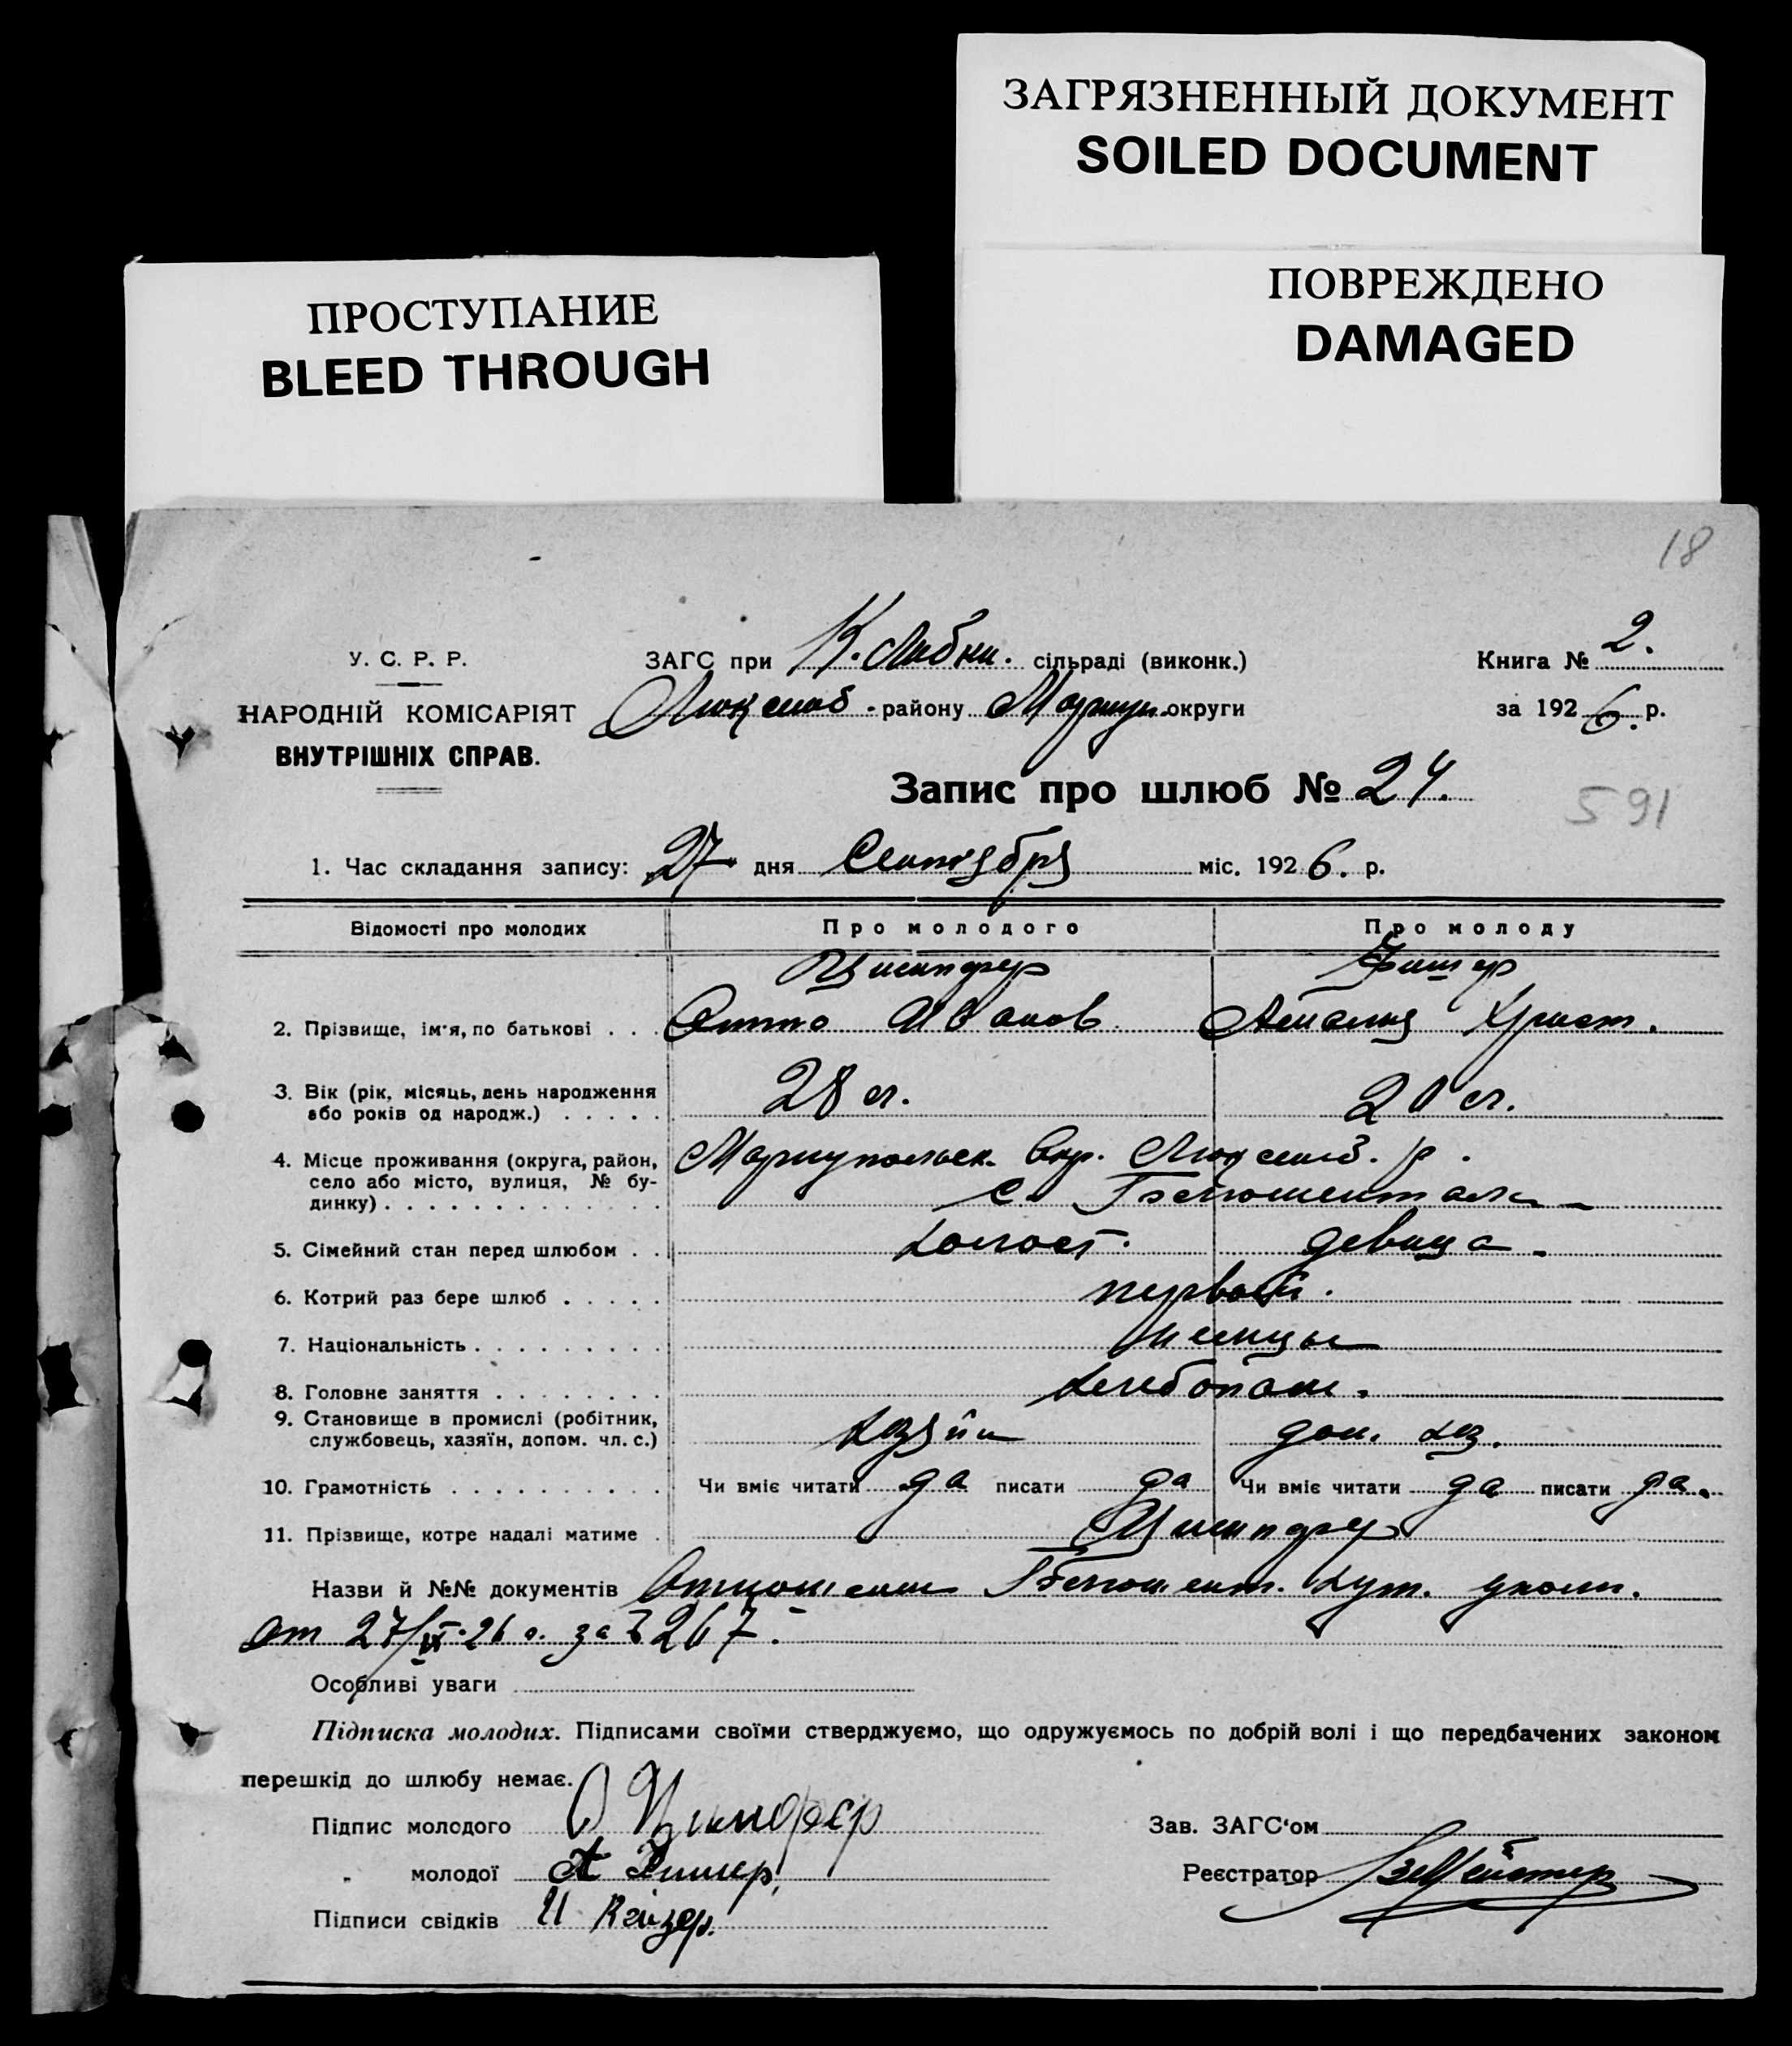 ЗАГРЯЗНЕННЫЙ ДОКУМЕНТ
SOILED DOCUMENT
ПРОСТУПАНИЕ
BLEED THROUGH
ПОВРЕЖДЕНО
DAMAGED
18
У. С. Р. Р.
НАРОДНІЙ КОМІСАРІЯТ
ВНУТРІШНІХ СПРАВ.
ЗАГС при К. сільраді (виконк.)
Люксемб. району Мариуп. округи
Книга № 2.
за 1926. р.
Запис про шлюб № 24.
591
1. Час складання запису: 27 дня Сентября міс. 1926. р.
Відомості про молодих Про молодого Про молоду
Цимпфер Фишер
2. Прізвище, ім'я, по батькові . . . Отто Иванов. Амалия Христ.
3. Вік (рік, місяць, день народження
або років од народж.) . . . . . 28 л. 20 л.
4. Місце проживання (округа, район, Мариупольск. Окр. Люксемб. р.
село або місто, вулиця, № бу-
динку) . . . . . . . . . . . . . с.
5. Сімейний стан перед шлюбом . . холост. девица.
6. Котрий раз бере шлюб . . . . . первый.
7. Національність . . . . . . . . . немцы
8. Головне заняття . . . . . . . . хлебопаш.
9. Становище в промислі (робітник,
службовець, хазяїн, допом. чл. с.) хозяин дом. хоз.
10. Грамотність . . . . . . . . . . Чи вміє читати да писати да Чи вміє читати да писати да.
11. Прізвище, котре надалі матиме . Цимпфер
Назви й №№ документів Отношение хут. уполн.
от 27/IX-26 г. за № 267.
Особливі уваги
Підписка молодих. Підписами своїми стверджуємо, що одружуємось по добрій волі і що передбачених законом
перешкід до шлюбу немає.
Підпис молодого О Цимпфер
Зав. ЗАГС'ом
„ молодої А Фишер
Реєстратор
Підписи свідків И Кайзер.